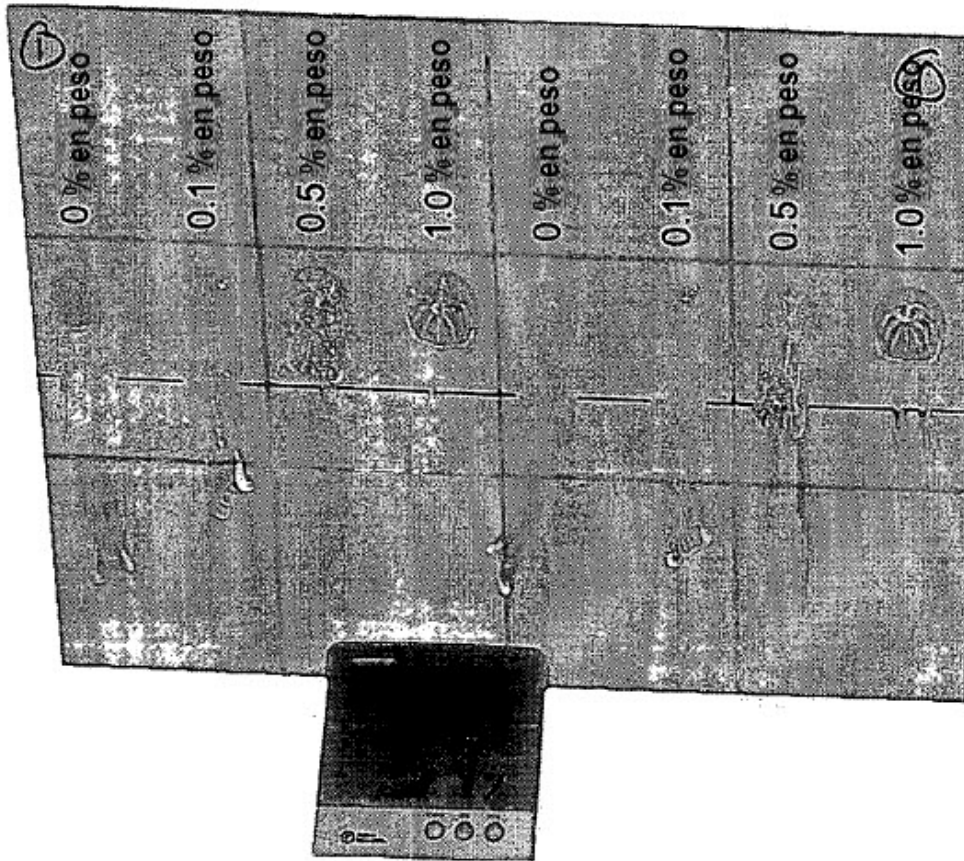 0 % en peso
0.1 % en peso
0.5 % en peso
1.0 % en peso
0 % en peso
0.1 % en peso
0.5 % en peso
1.0 % en peso